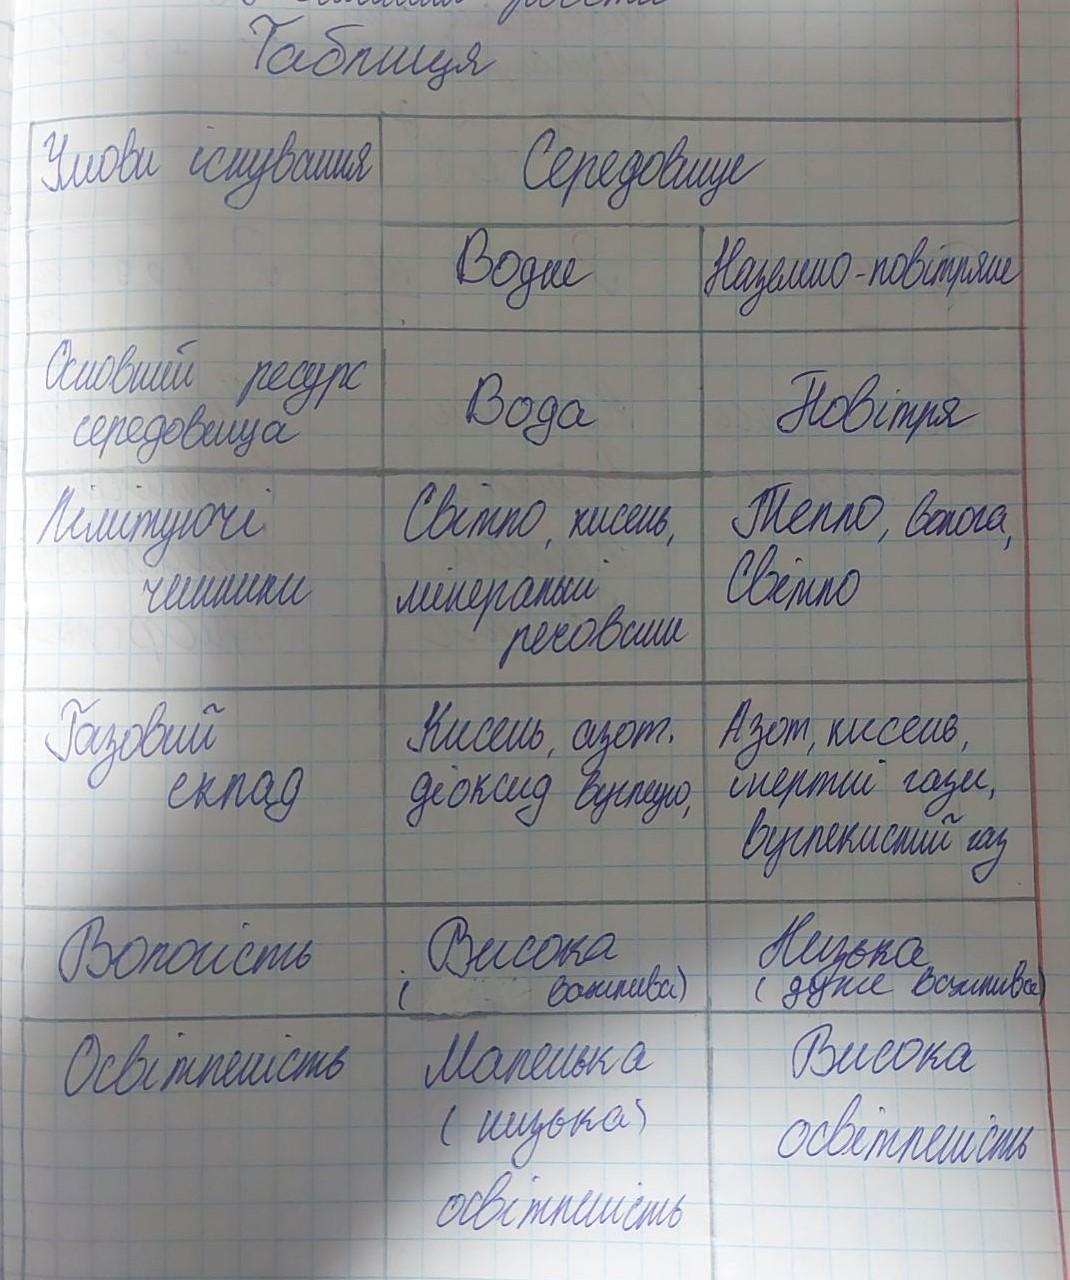 Таблиця
Умови існування Середовище
Водне Наземно-повітряне
Основний ресурс
середовища Вода Повітря
Лімітуючі Світло, кисень, Тепло, волога,
чинники мінеральні Світло
речовини
Газовий Кисень, азот. Азот, кисень,
склад діоксид вуглецю, інертні гази,
вуглекистий газ
Вологість Висока Низька
( важлива) ( дуже важлива)
Освітленість Маленька Висока
(низька) освітленість
освітленість